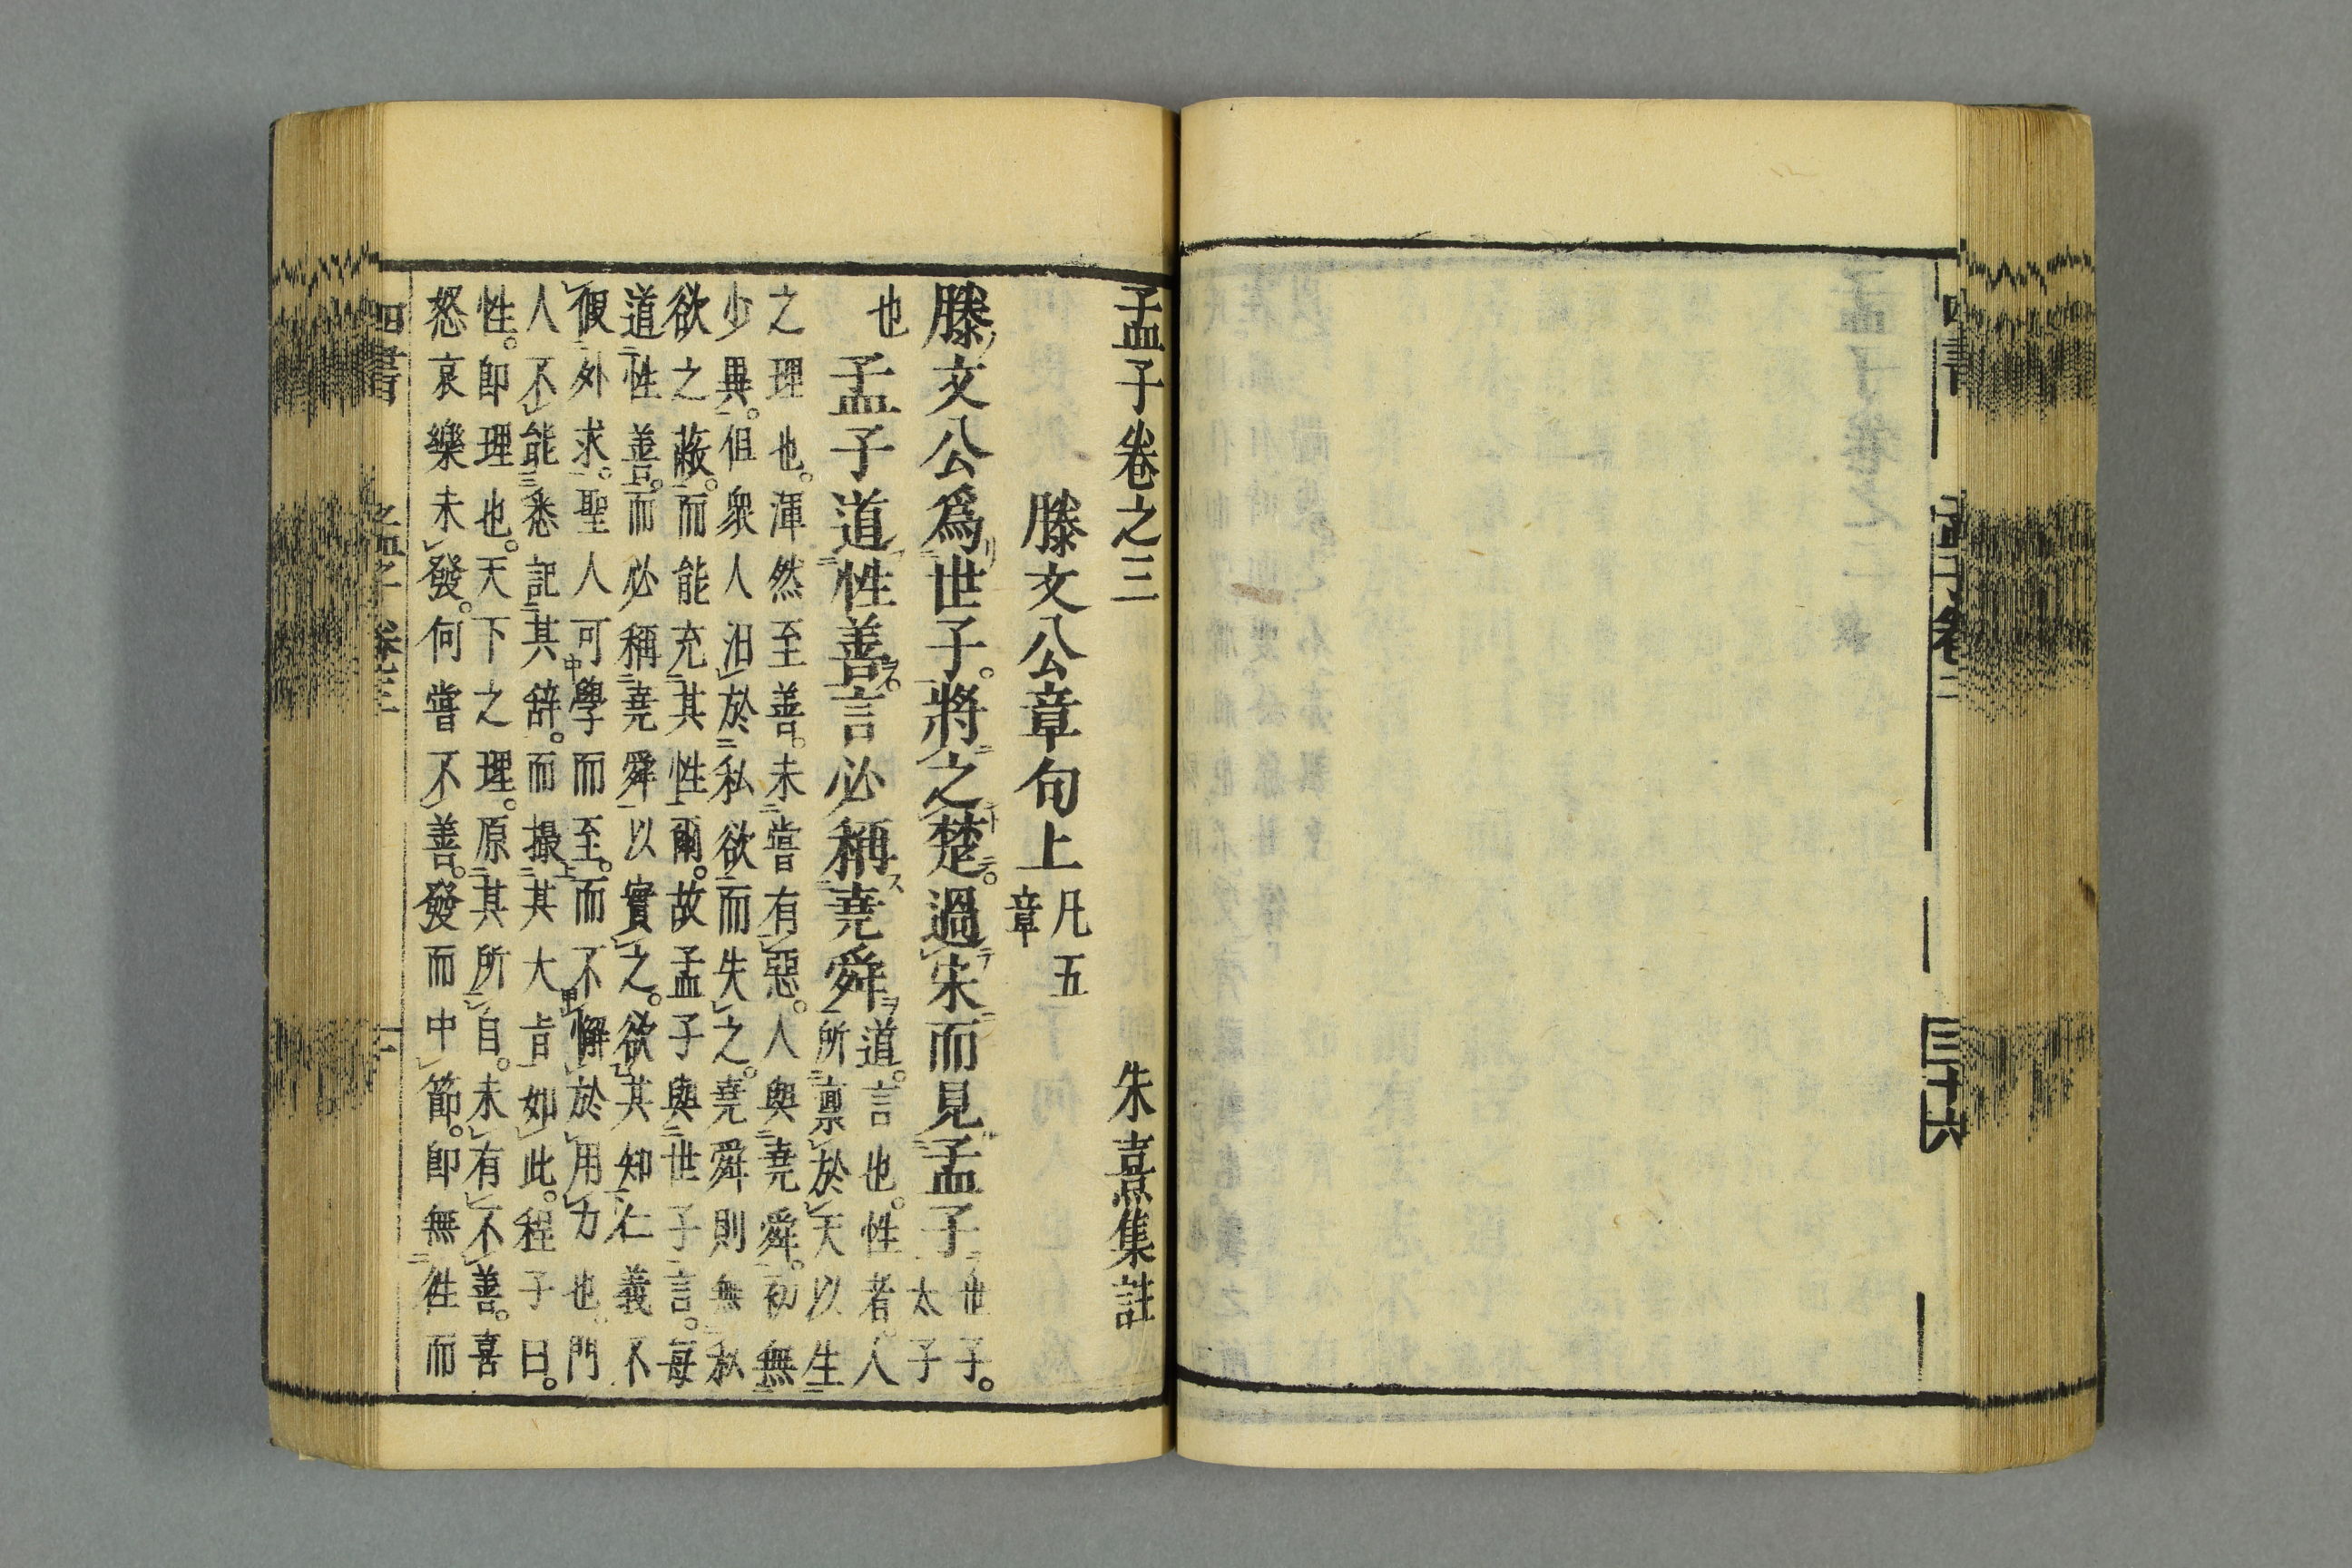 四書　孟子卷二　三十六
孟子卷之三　朱熹集註
滕文公章句上　凡五
章
滕文公爲世子。將之楚。過宋而見孟子　世子。
太子
也　孟子道性善。言必稱堯舜　道。言也。性者。人
所稟於天以生
之理也。渾然至善。未嘗有惡。人與堯舜。初無
少異。但衆人汨於私欲而失之。堯舜則無私
欲之蔽。而能充其性爾。故孟子與世子言。每
道性善。而必稱堯舜以實之。欲其知仁義不
假外求。聖人可學而至。而不懈於用力也。門
人不能悉記其辭。而撮其大旨如此。程子曰。
性。即理也。天下之理。原其所自。未有不善。喜
怒哀樂未發。何嘗不善。發而中節。即無往而
四書　孟子　卷三